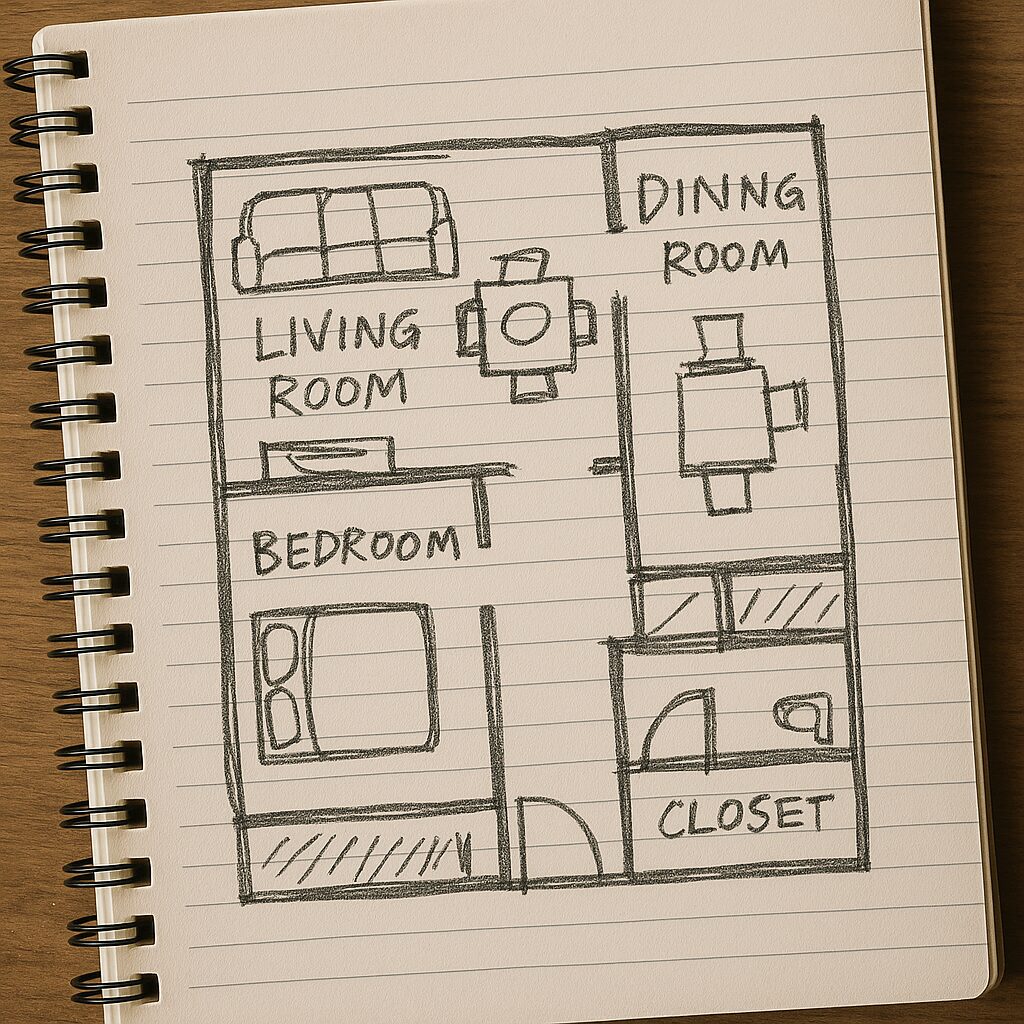 DINNG
ROOM
LIVING
ROOM
BEDROOM
CLOSET